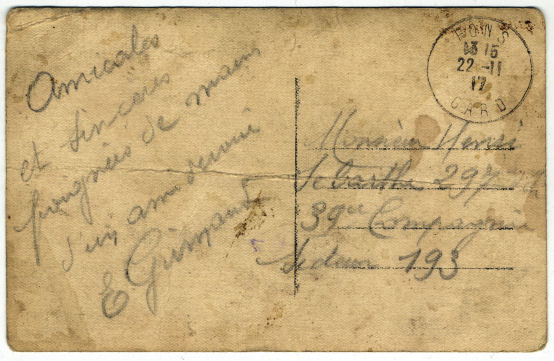 Amicales
et sincères
poignées de mains
d'un ami dévoué
E Grimaud
PONS
13 15
22 -11
17
GARD
Monsieur Henri
297
39e Compagnie
Secteur 193